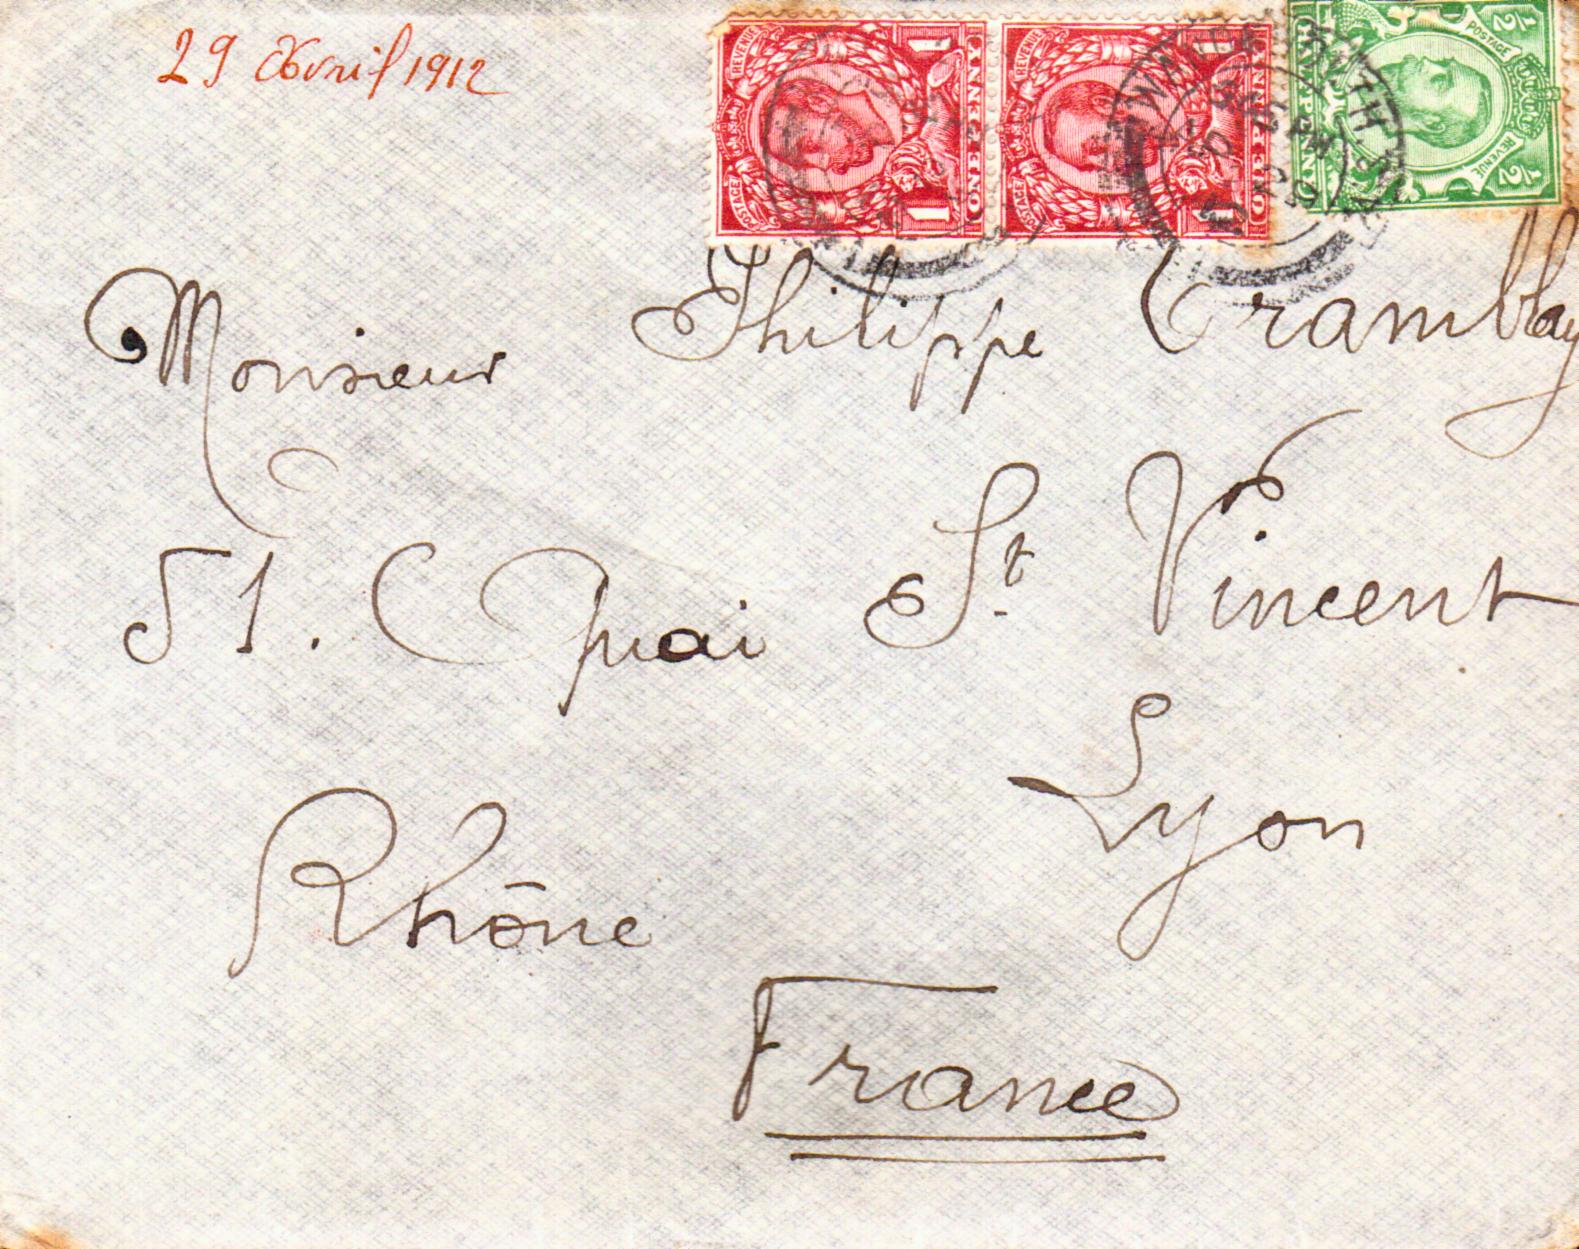 29 Avril 1912
REVENUE 1 POSTAGE 1 ONE PENNY
REVENUE 1 POSTAGE 1 ONE PENNY
½ POSTAGE REVENUE ½ HALFPENNY
Monsieur Philippe Tramblay
51. Quai St. Vincent
Lyon
Rhône
France